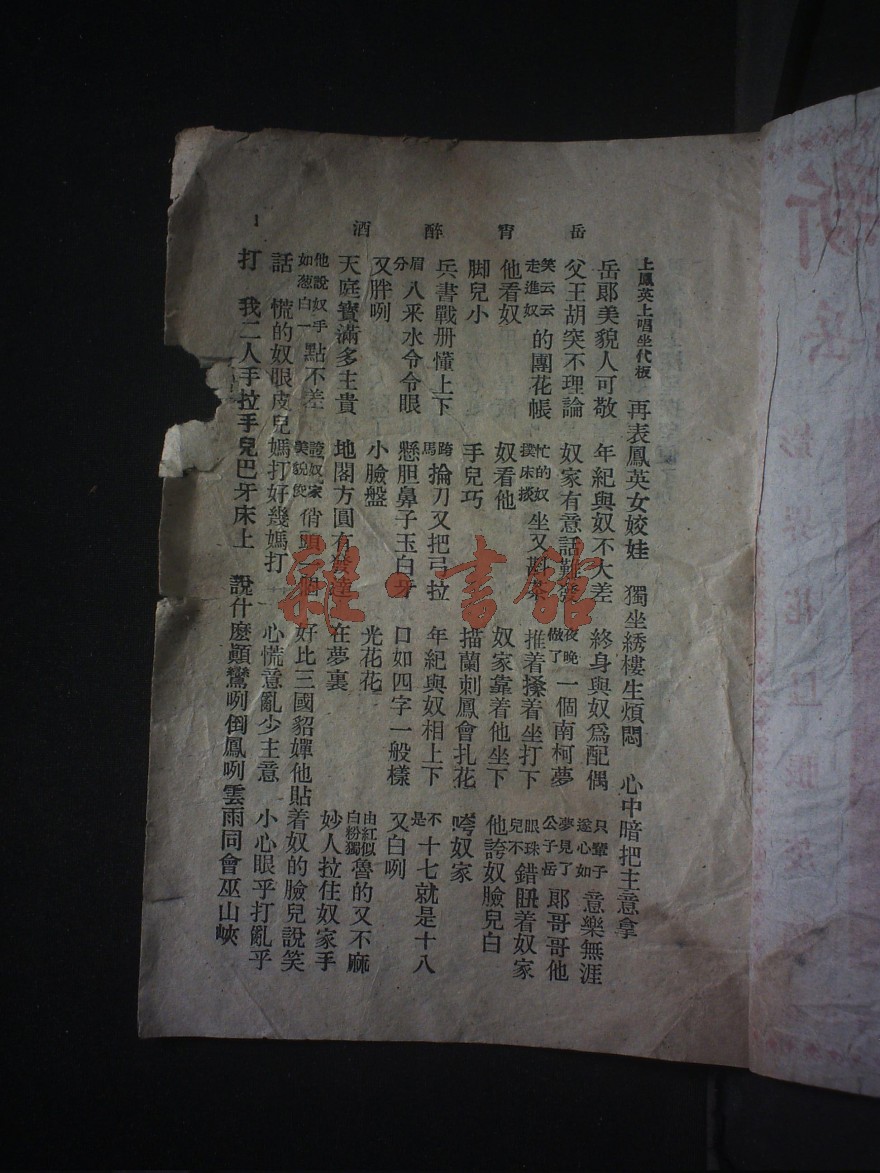 岳甯醉酒
上鳳英上唱坐代板 再表鳳英女姣娃 獨坐綉樓生煩悶 心中暗把主意拿
岳郎美貌人可敬 年紀與奴不大差 終身與奴爲配偶 只輩子遂心如意樂無涯
父王胡突不理論 奴家有意話難發 夜晚做了一個南柯夢 夢見了公子岳郎哥哥他
笑云云走進奴的團花帳 忙的奴撲床掞坐又斟茶 推着搡着坐打下 眼珠兒不錯瞅着奴家
他看奴 奴看他 奴家靠着他坐下 他誇奴臉兒白
脚兒小 手兒巧 描蘭刺鳳會扎花 咵奴家
兵書戰册懂上下 跨馬掄刀又把弓拉 年紀與奴相上下 不是十七就是十八
眉分八采水令令眼 懸胆鼻子玉白牙 口如四字一般樣 又白咧
又胖咧 小臉盤 光花花 由紅似白粉獨魯的又不麻
天庭寶滿多主貴 地閣方圓有發達 在夢裏 妙人拉住奴家手
他說奴手如葱白一點不差 誇奴家美貌俊俏頭一個 好比三國貂嬋他貼着奴的臉兒說笑
話 慌的奴眼皮兒媽打好幾媽打 心慌意亂少主意 小心眼乎打亂乎
打 我二人手拉手兒巴牙床上 說什麽顚鸞咧倒鳳咧雲雨同會巫山峽
1
新岳
彭翠花上眼
雜·書館